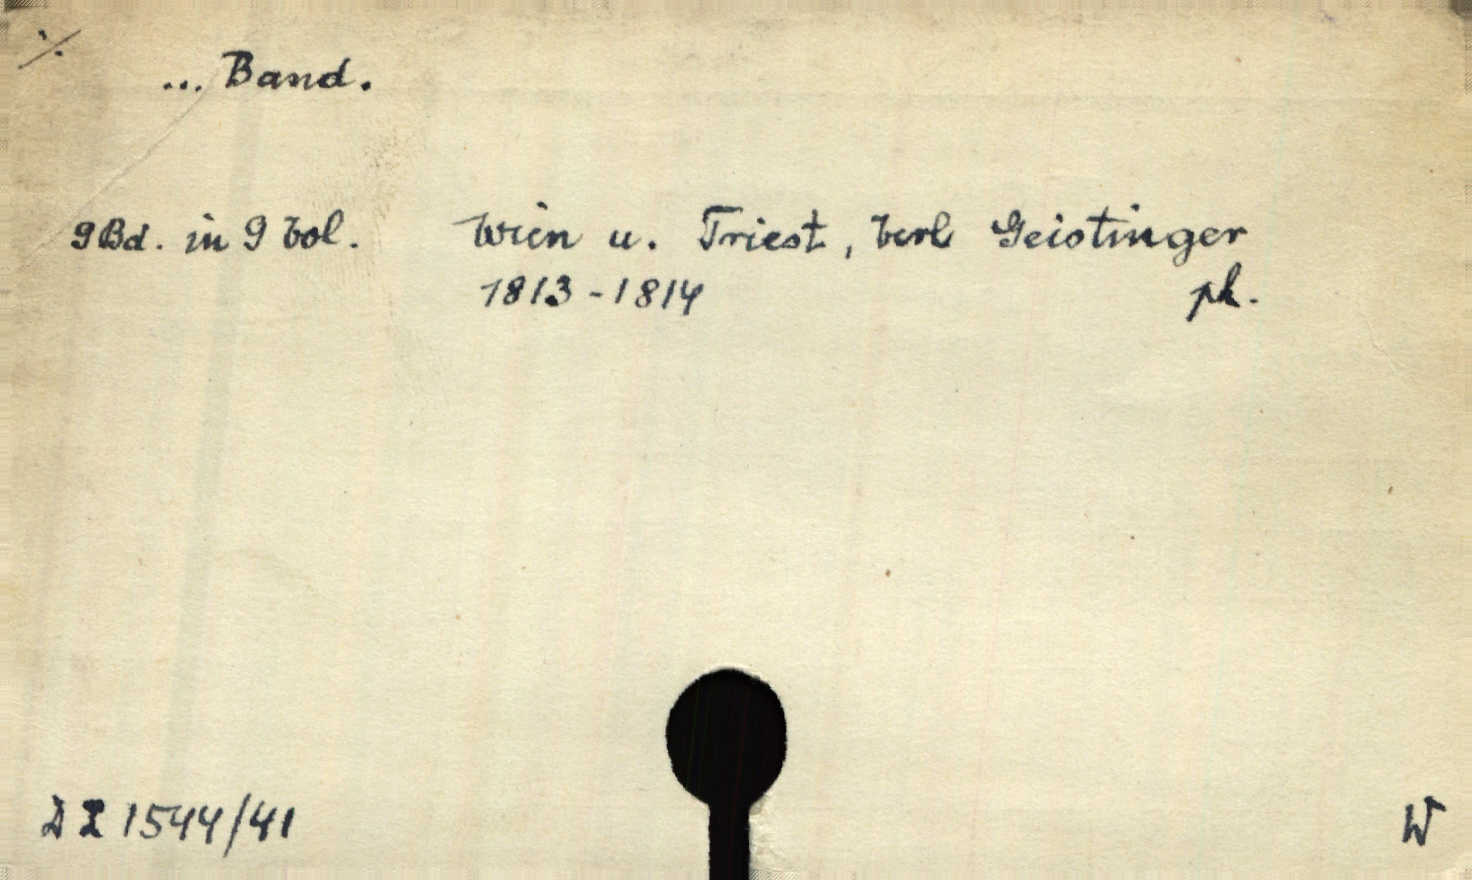 ./.
... Band.
9 Bd. in 9 Vol. Wien u. Triest, Verl Geistinger
1813-1814 ph.
DZ 1544/41 W